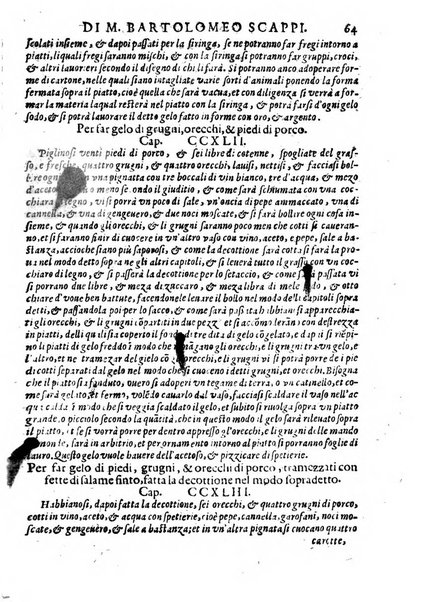 DI M. BARTOLOMEO SCAPPI. 64
scolati insieme, & dapoi passati per la siringa, se ne potranno far fregi intorno a
piatti, liquali fregi saranno mischi, & con essa siringa si potranno far gruppi, croci,
et altri lauorer secondo il disegno di chi li farà. Si potranno anco adoperare forme
di cartone, nelle quali siano intagliate varie sorti d'animali ponendo la forma
fermata sopra il piatto, cioè quella che sarà vacua, et con diligenza si verrà a for-
mar la materia laqual resterà nel piatto con la siringa, & si potrà far d'ogni gelo
sodo, & si potrà lauorare il detto gelo fatto in forme con oro, & argento.
Per far gelo di grugni, orecchi, & piedi di porco.
Cap. CCXLII.
Piglinosi venti piedi di porco, & sei libre di cotenne, spogliate del graf-
so, e fresche, quattro grugni, & quattro orecchi, lauisi, nettisi, & facciasi bol-
lire ogni cosa in vna pignatta con tre boccali di vin bianco, tre d'acqua, & mezo
d'aceto, & meno secondo il giuditio, & come sarà schiumata con vna coc-
chiara di legno, vi si porrà vn poco di sale, vn'oncia di pepe ammaccato, vna di
cannella, & vna di gengeuero, & due noci moscate, & si farà bollire ogni cosa in-
sieme, & quando gli orecchi, & li grugni saranno poco men che cotti se caueran-
no, et si faranno finir di cuocere in vn'altro vaso con vino, aceto, & pepe, sale a ba-
stanza, accioche siano più saporosi, & come la decottione sarà cotta si farà la pro-
ua nel modo detto ne gli altri capitoli, & si leuerà tutto il grasso con vn coc-
chiaro di legno, & si passarà la decottione per lo setaccio, & come sarà passata vi
si porrano due libre, & meza di zuccaro, & meza libra di mele sodo, & otto
chiare d'uoue ben battute, facendone leuare il bollo nel modo delli capitoli sopra
detti, & passandola poi per lo sacco, & come sarà passata habbiansi apparecchia-
ti gli orecchi, & li grugni cōpartiti in due pezzi et si acconcierāno con destrezza
in piatti, delli qu ili se co perto il fondo di tre dita di gelo cōgelato, et dapoi si riē-
pino li piatti del medesimo gelo freddo non congelato tra gli orecchi, & li grugni tra l'vn, e
l'altro, et ne tramezar del gielo cō gli orecchi, et li grugni vi si potrà porre de i pie-
di cotti separati dal gelo nel modo che si cuocono i detti grugni, et orecchi. Et come
nelli piatti si a fonduto, auero in vn tegame di terra, o vn catinello, et co-
me sarà gelato, et fermo, volēdo cauarlo dal vaso, facciasi scaldare il vaso nell'ac-
qua molto calda di modo che si veggia scaldato il gelo, et subito si riuolga sopra vn piatto
grande, o piccolo secondo la quantità, che con questo modo il gelo resterà intiero sopra il
piatto, et se si vorrà porre per dentro appresso gli orecchi, e li grugni delle mando
le monde, sarà in arbitrio, et per ornamento intorno al piatto si porranno foglie di
lauro. Questo gelo vuole bauere dell'acetoso, & pizzicare di spetierie.
Per far gelo di piedi, grugni, & orecchi di porco, tramezzati con
fette di salame sinto, fatto detto gelo nel modo sopradetto.
Cap. CCXLIII.
Habbianosi, dapoi fatta la decottione, sei orecchi, & quattro grugni di porco,
cotti in vino, aceto, & acqua con spetierie, cioè pepe, cannella, garofani, noci mo-
scate, & gengeuero, & sale a bastanza, & in vn'altra pignatta si cuocano quattro
carette,